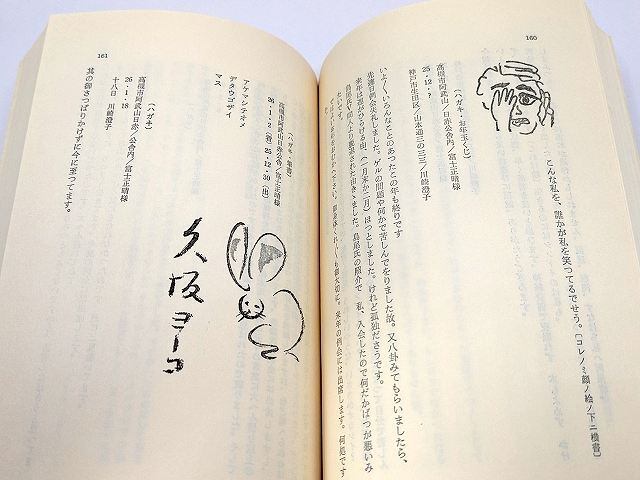 160
こんな私を、誰かが私を笑つてるでせう。〔コレノミ顔ノ絵ノ下ニ横書〕
（ハガキ・お年玉くじ）
高槻市阿武山／日赤公舎内／富士正晴様
25・12・?
神戸市生田区／山本通三の三三／川崎澄子
いよ〳〵いろんなことのあつたこの年も終りです
先達日例会失礼しました。ゲルの問題や何かで苦しんでをりました故。又八卦みてもらいましたら、
来年は運がひらける由、（一月末か二月）ほつとしました。けれど孤独ださうです。
島尾氏の紹介で 私、入会したので何だかばつが悪いみ
たいです。
来年の例会には出席します。何処です
161
（ハガキ・墨書）
高槻市阿武山日赤公舎内／富士正晴様
26・1・2
25・12・30（出）
アケマシテオメ
デタウゴザイ
マス
久坂ヨーコ
（ハガキ）
高槻市阿武山日赤／公舎内／富士正晴様
26・1・18
十八日 川崎澄子
其の御さつぱりかけずに今に至つてます。